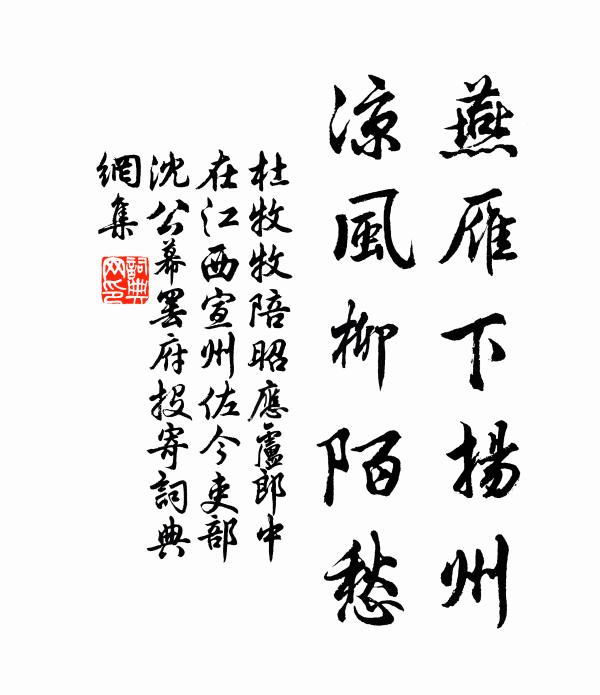 燕雁下揚州
涼風柳陌愁
杜牧牧陪昭應盧郎中
在江西宣州佐今吏部
沈公幕罷府投寄詞典
網集
詞典網印